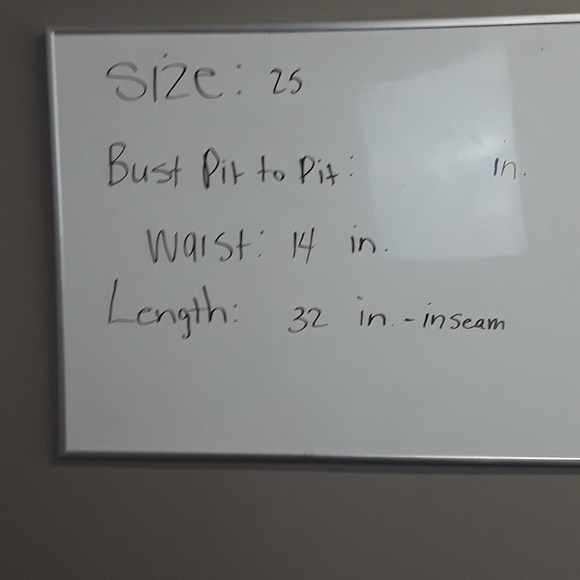 Size: 25
Bust Pit to Pit: in.
Waist: 14 in.
Length: 32 in. - inseam